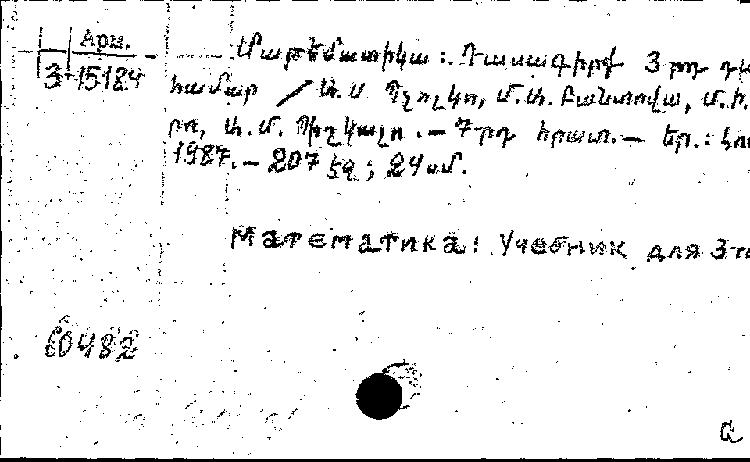 Арм.
3-15184
Մաթեմատիկա: Դասագիրք 3-րդ դա
համար / Ա.Ս. Պչոլկո, Մ.Ա. Բանտովա, Մ.Ի.
րո, Ա.Մ. Պիշկալո. — 7-րդ հրատ. — Եր.: Լու
1987. — 207 էջ; 24 սմ.
Математика: Учебник для 3-го
60482